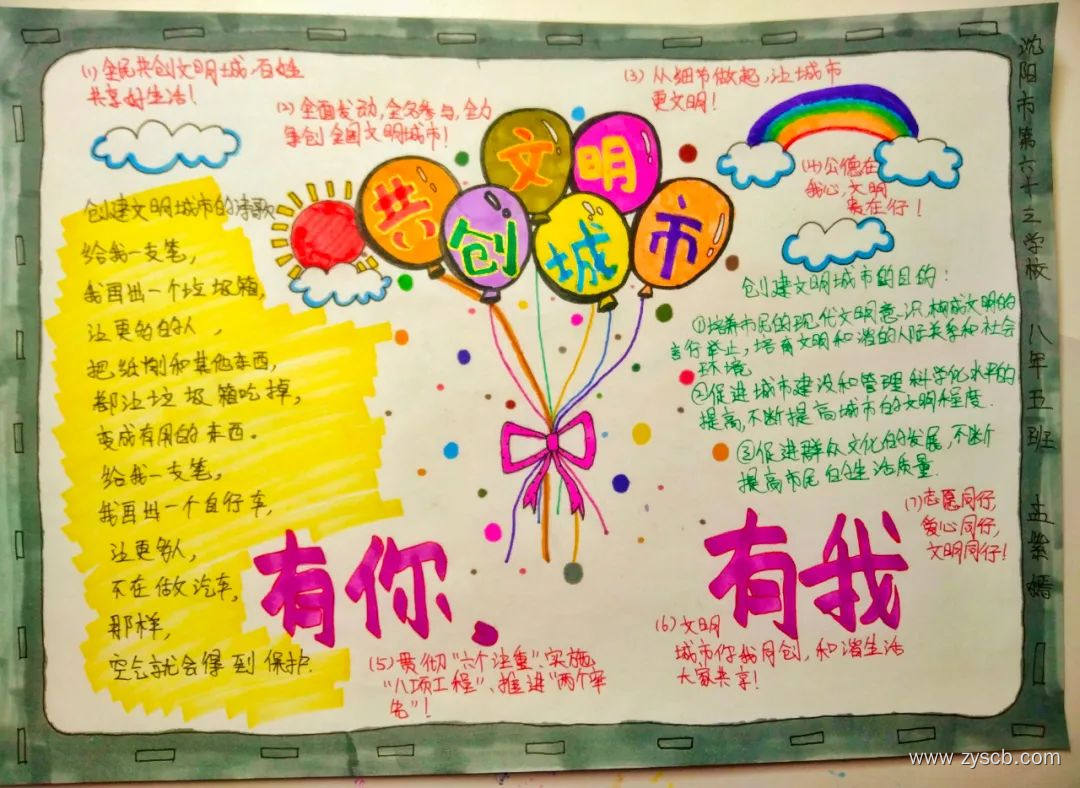 (1) 全民共创文明城,百姓
共享好生活!
(2) 全面发动,全名参与,全力
争创全国文明城市!
(3) 从细节做起,让城市
更文明!
(4) 公德在
我心,文明
贵在行!
共创文明城市
创建文明城市的诗歌
给我一支笔,
我画出一个垃圾箱,
让更多的人,
把纸悄和其他东西,
都让垃圾箱吃掉,
变成有用的东西。
给我一支笔,
我画出一个自行车,
让更多人,
不在做汽车,
那样,
空气就会得到保护.
创建文明城市的目的:
①培养市民的现代文明意识,构成文明的
言行举止,培育文明和谐的人际关系和社会
环境
②促进城市建设和管理科学化水平的
提高,不断提高城市的文明程度.
③促进群众文化的发展,不断
提高市民的生活质量.
有你
有我
(5) 贯彻“六个注重”、实施
“八项工程”、推进“两个率
先”!
(6) 文明
城市你我同创,和谐生活
大家共享!
(7) 志愿同行,
爱心同行,
文明同行!
沈阳市第六十之学校 八年五班 孟紫嫣
www.zyscb.com